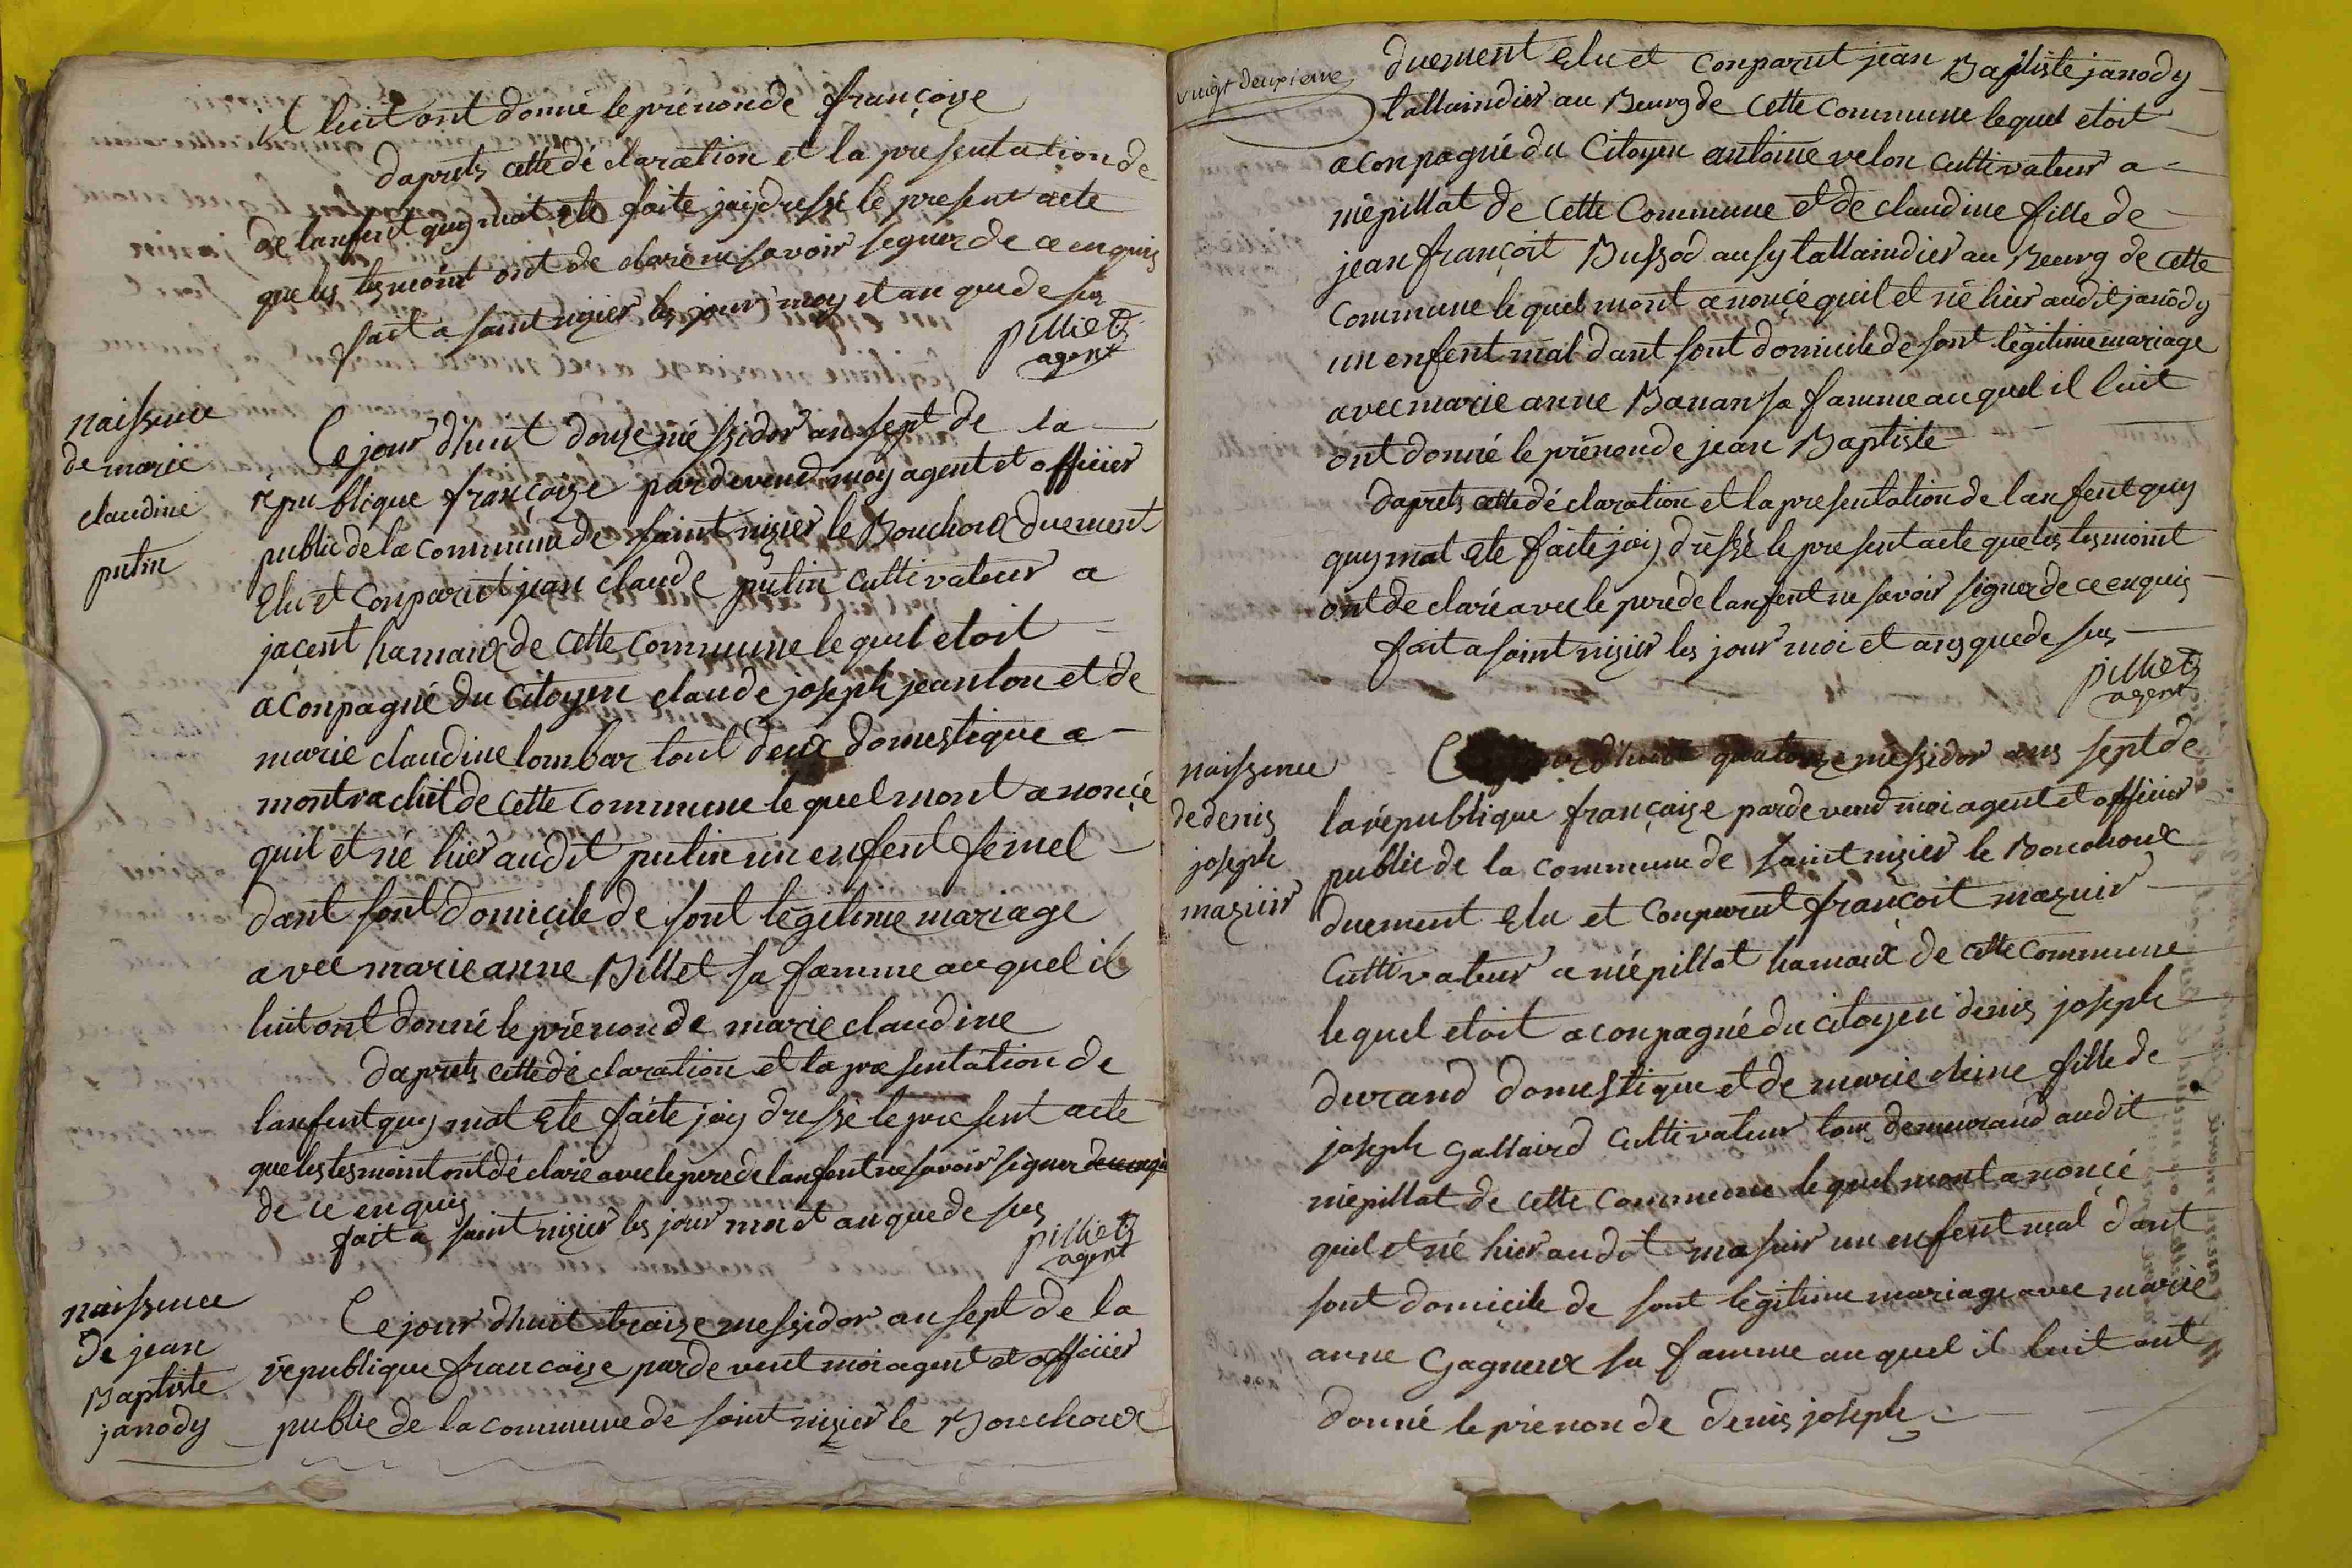 il luit ont donné le prénon de françoise
daprets cette dé claration et la presentation de
de lanfent quy mat ete faite jaiy dressé le present acte
que les tesmoint ont de claré ne savoir segner de ce enquis
fait a saint nizier les jour moy et an que de sus
pilliet
agent
naissence
de marie
claudine
putin
Ce jour dhuit douze méssidor an sept de la
république françoise pardevend moy agent et officier
public de la commune de saint nizier le Bouchoux duement
Elu et Conparut jean claude putin cultivateur a
jaçent hamaux de cette commune le quel etoit
aconpagné du citoyen claude joseph jeanton et de
marie claudine lombar tout deux domestique a
montrachit de cette commune le quel mont anoncé
quil et né hier audit putin un enfent femel
dant sont domicile de sont légitime mariage
avec marie anne Billet sa famme au quel il
luit ont donné le prénon de marie claudine
daprets cette dé claration et la presentation de
lanfent quy mat ete faite jaiy dressé le present acte
que les tesmoint ont dé claré avec le pere de lanfent ne savoir signer de ce enquis
de ce enquis
fait a saint nizier les jour moi et an que de sus
pilliet
agent
naissence
de jean
Baptiste
janody
Ce jour dhuit traize messidor an sept de la
république francaise parde vent moi agent et officier
public de la commune de saint nizier le Bouchoux
vingt deuxieme
duement elu et Conparut jean Baptiste janody
tallaindier au Bourg de cette commune lequel etoit
aconpagné du Citoyen antoine velon cultivateur a
mépillat de cette Commune et de claudine fille de
jean françoit Bussod ausy tallaindier au Bourg de cette
Commune le quel mont anoncé quil et né hier audit janody
un enfent mal dant sont domicile de sont légitime mariage
avec marie anne Banan sa famme au quel il luit
ont donné le prénon de jean Baptiste
daprets cette dé claration et la presentation de lanfent quy
quy mat ete faite jaiy dressé le present acte que les tesmoint
ont de claré avec le pere de lanfent ne savoir signer de ce enquis
fait a saint nizier les jour moi et ans que de sus
pilliet
agent
naissence
de denis
joseph
mazuir
Ce dhuit quatorze messidor ans sept de
la république françaize parde vend moi agent et officier
public de la commune de saint nizier le Bouchoux
duement Elu et Conparut françoit mazuir
Cultivateur a mépillat hamaux de cette commune
le quel etoit aconpagné du citoyen denis joseph
durand domestique et de marie cleine fille de
joseph gallaird cultivateur tous demeurand audit
mépillat de cette commune le quel mont anoncé
quil et né hier audit masuir un enfent mal dant
sont domicile de sont légitime mariage avec marie
anne Gagneux sa famme au quel il luit ont
donné le prénon de denis joseph